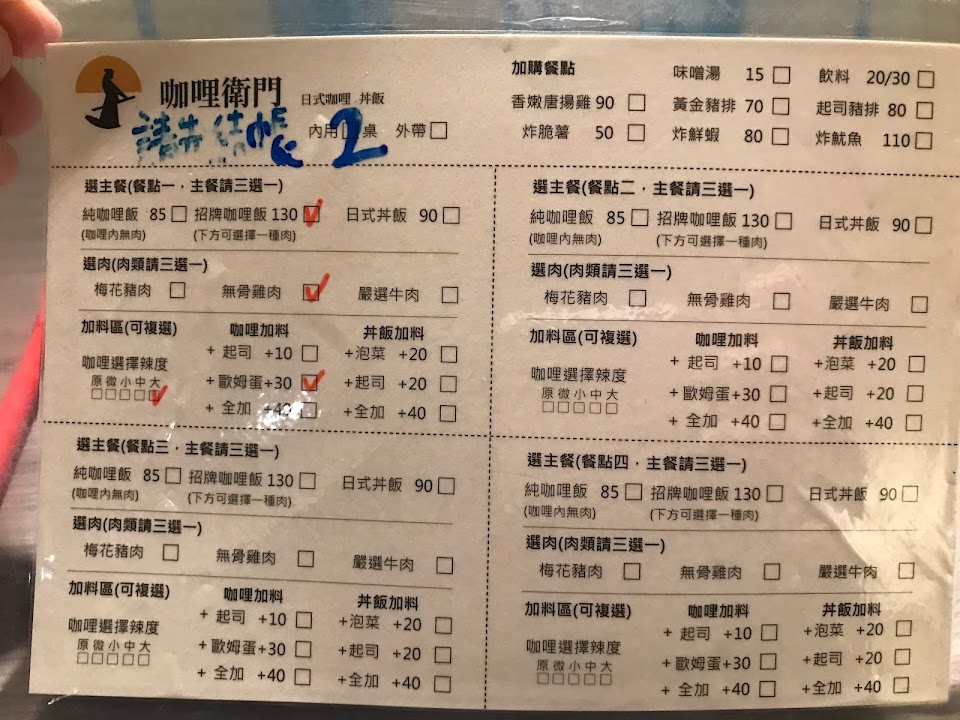 咖哩衛門 日式咖哩 丼飯
請先結帳 2
內用□桌 外帶□
加購餐點 味噌湯 15 □ 飲料 20/30 □
香嫩唐揚雞 90 □ 黃金豬排 70 □ 起司豬排 80 □
炸脆薯 50 □ 炸鮮蝦 80 □ 炸魷魚 110 □
選主餐(餐點一，主餐請三選一)
純咖哩飯 85 □ 招牌咖哩飯 130 ☑ 日式丼飯 90 □
(咖哩內無肉) (下方可選擇一種肉)
選肉(肉類請三選一)
梅花豬肉 □ 無骨雞肉 ☑ 嚴選牛肉 □
加料區(可複選) 咖哩加料 丼飯加料
+ 起司 +10 □ +泡菜 +20 □
咖哩選擇辣度
原微小中大 + 歐姆蛋+30 ☑ +起司 +20 □
□□□□☑ + 全加 +40 □ +全加 +40 □
選主餐(餐點二，主餐請三選一)
純咖哩飯 85 □ 招牌咖哩飯 130 □ 日式丼飯 90 □
(咖哩內無肉) (下方可選擇一種肉)
選肉(肉類請三選一)
梅花豬肉 □ 無骨雞肉 □ 嚴選牛肉 □
加料區(可複選) 咖哩加料 丼飯加料
+ 起司 +10 □ +泡菜 +20 □
咖哩選擇辣度
原微小中大 + 歐姆蛋+30 □ +起司 +20 □
□□□□□ + 全加 +40 □ +全加 +40 □
選主餐(餐點三，主餐請三選一)
純咖哩飯 85 □ 招牌咖哩飯 130 □ 日式丼飯 90 □
(咖哩內無肉) (下方可選擇一種肉)
選肉(肉類請三選一)
梅花豬肉 □ 無骨雞肉 □ 嚴選牛肉 □
加料區(可複選) 咖哩加料 丼飯加料
+ 起司 +10 □ +泡菜 +20 □
咖哩選擇辣度
原微小中大 + 歐姆蛋+30 □ +起司 +20 □
□□□□□ + 全加 +40 □ +全加 +40 □
選主餐(餐點四，主餐請三選一)
純咖哩飯 85 □ 招牌咖哩飯 130 □ 日式丼飯 90 □
(咖哩內無肉) (下方可選擇一種肉)
選肉(肉類請三選一)
梅花豬肉 □ 無骨雞肉 □ 嚴選牛肉 □
加料區(可複選) 咖哩加料 丼飯加料
+ 起司 +10 □ +泡菜 +20 □
咖哩選擇辣度
原微小中大 + 歐姆蛋+30 □ +起司 +20 □
□□□□□ + 全加 +40 □ +全加 +40 □